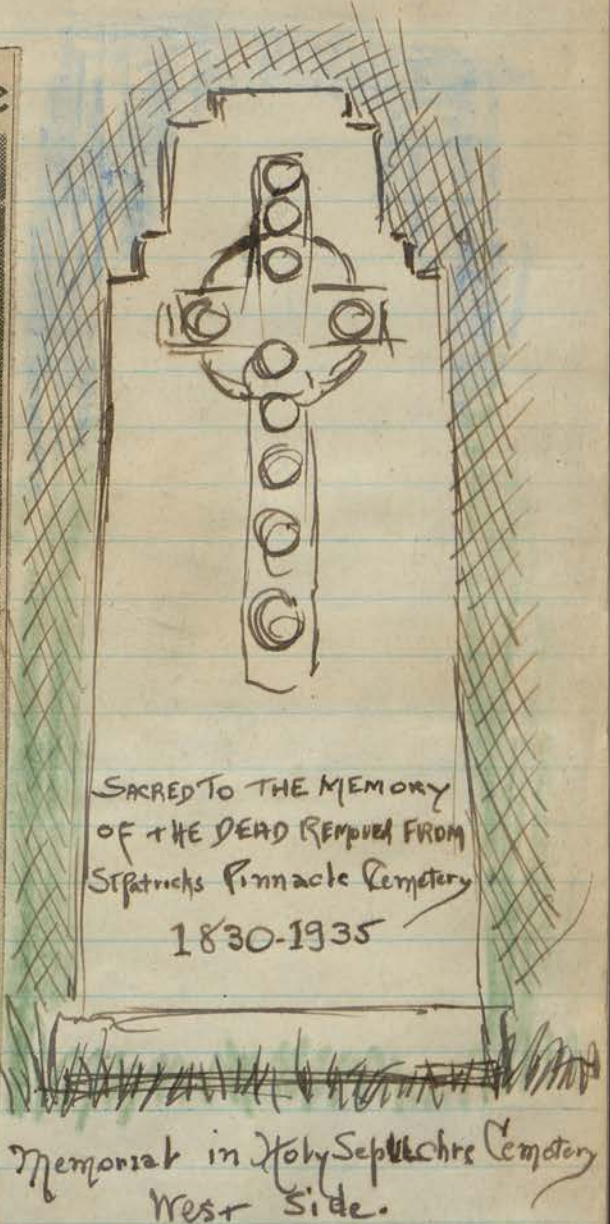 SACRED TO THE MEMORY
OF THE DEAD REMOVED FROM
St Patricks Pinnacle Cemetery
1830-1935
Memorial in Holy Sepulchre Cemetery
West Side.